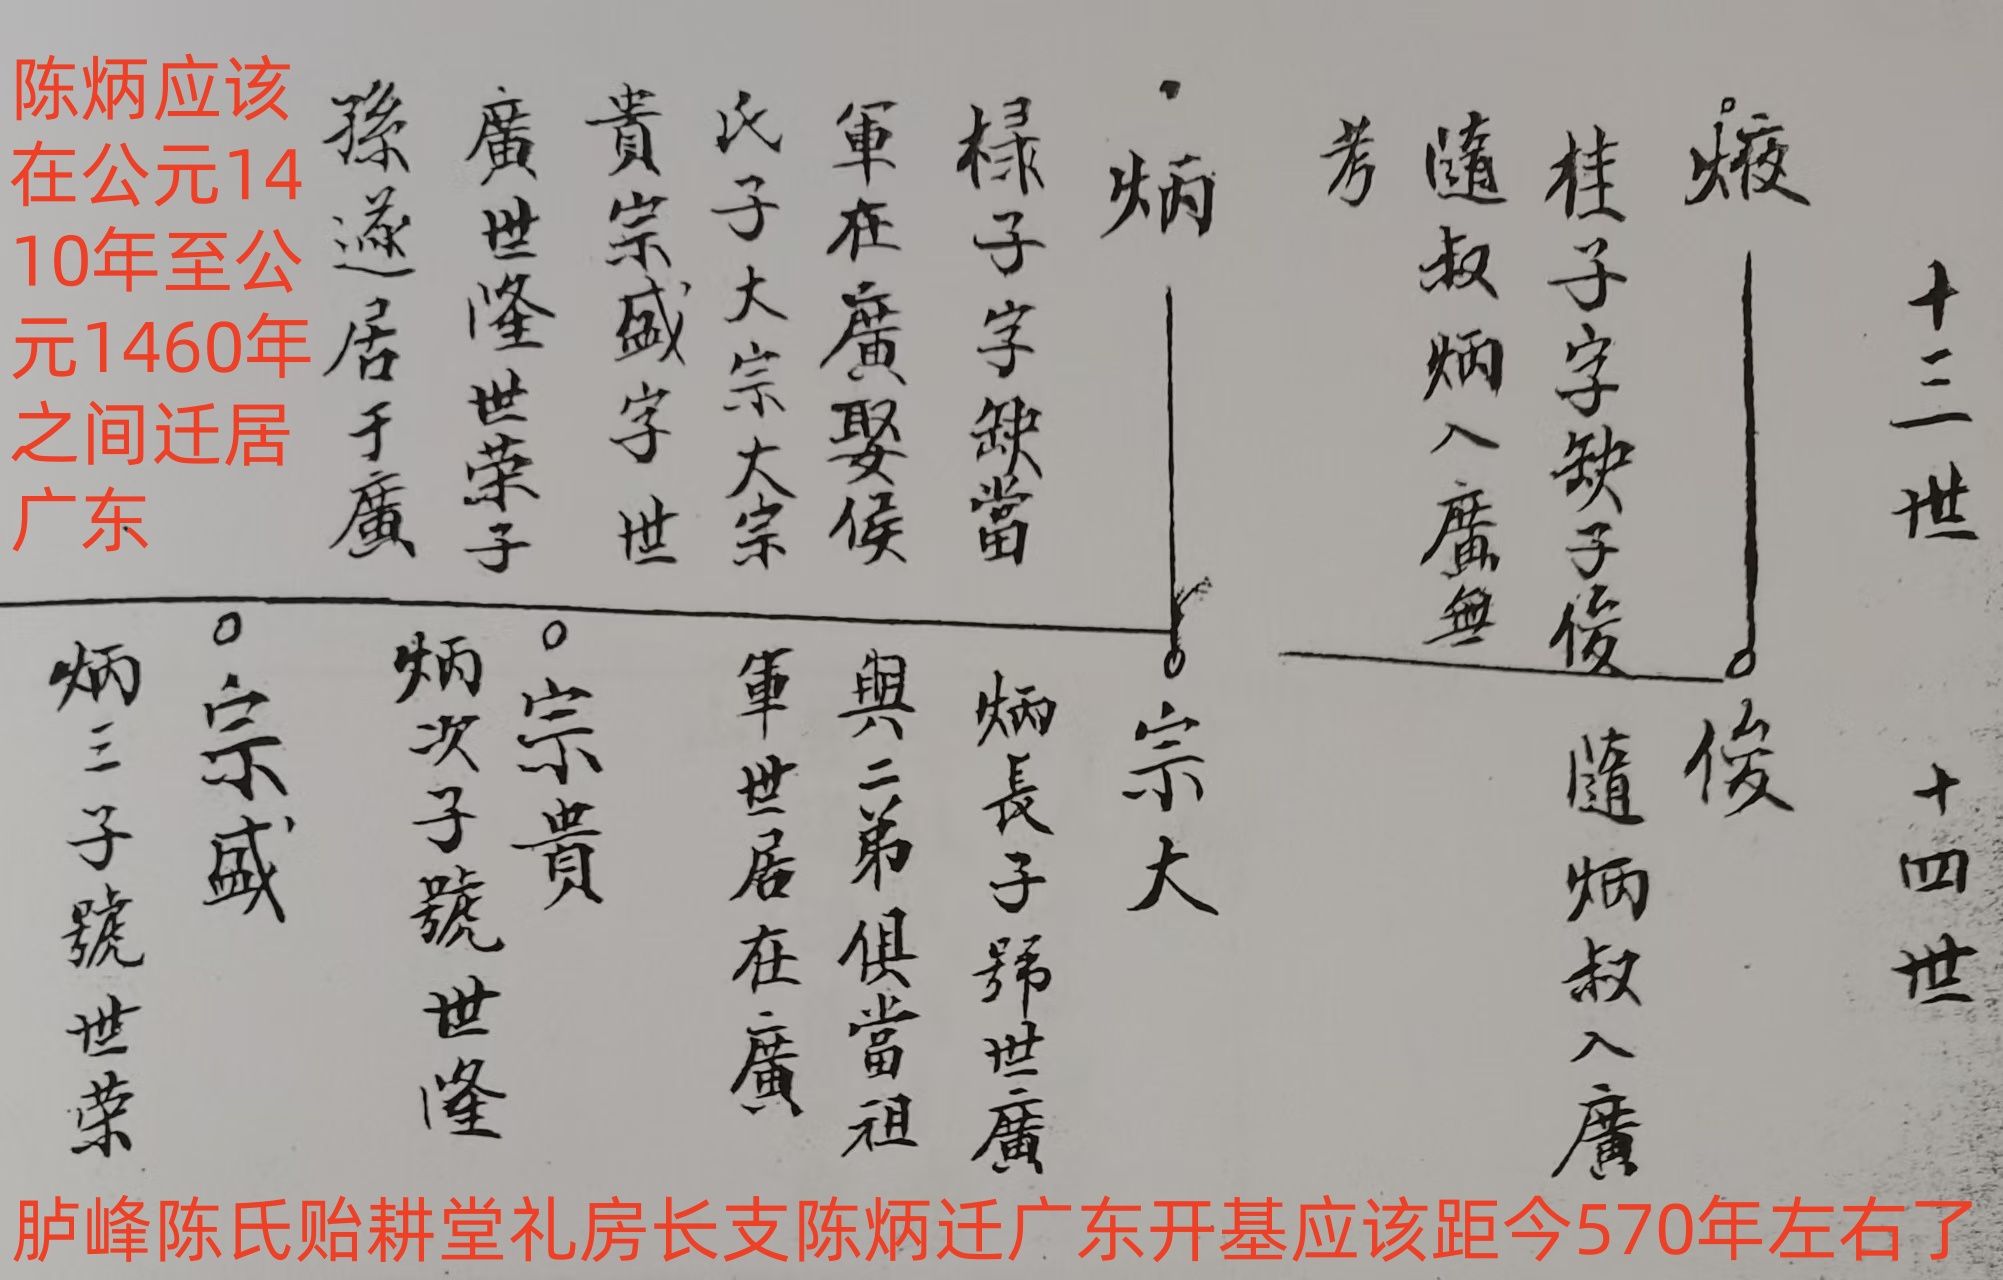 陈炳应该
在公元14
10年至公
元1460年
之间迁居
广东
十三世
桂子字缺子俊
隨叔炳入廣無
考
炳
椂子字缺當
軍在廣娶侯
氏子大宗大宗
貴宗盛字世
廣世隆世荣子
孫遂居于廣
十四世
俊
隨炳叔入廣
宗大
炳長子號世廣
與二弟俱當祖
軍世居在廣
宗貴
炳次子號世隆
宗盛
炳三子號世荣
胪峰陈氏贻耕堂礼房长支陈炳迁广东开基应该距今570年左右了